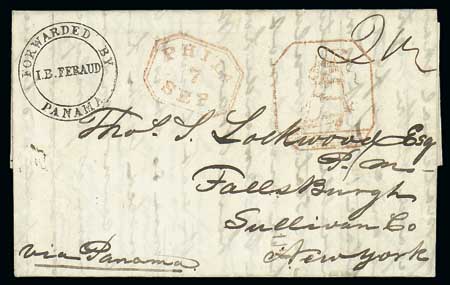 FORWARDED BY
I.B. FERAUD
PANAMA
PHILA
7
SEP
Thos. S. Lockwood Esq
P. m
Fallsburgh
Sullivan Co
New York
via Panama